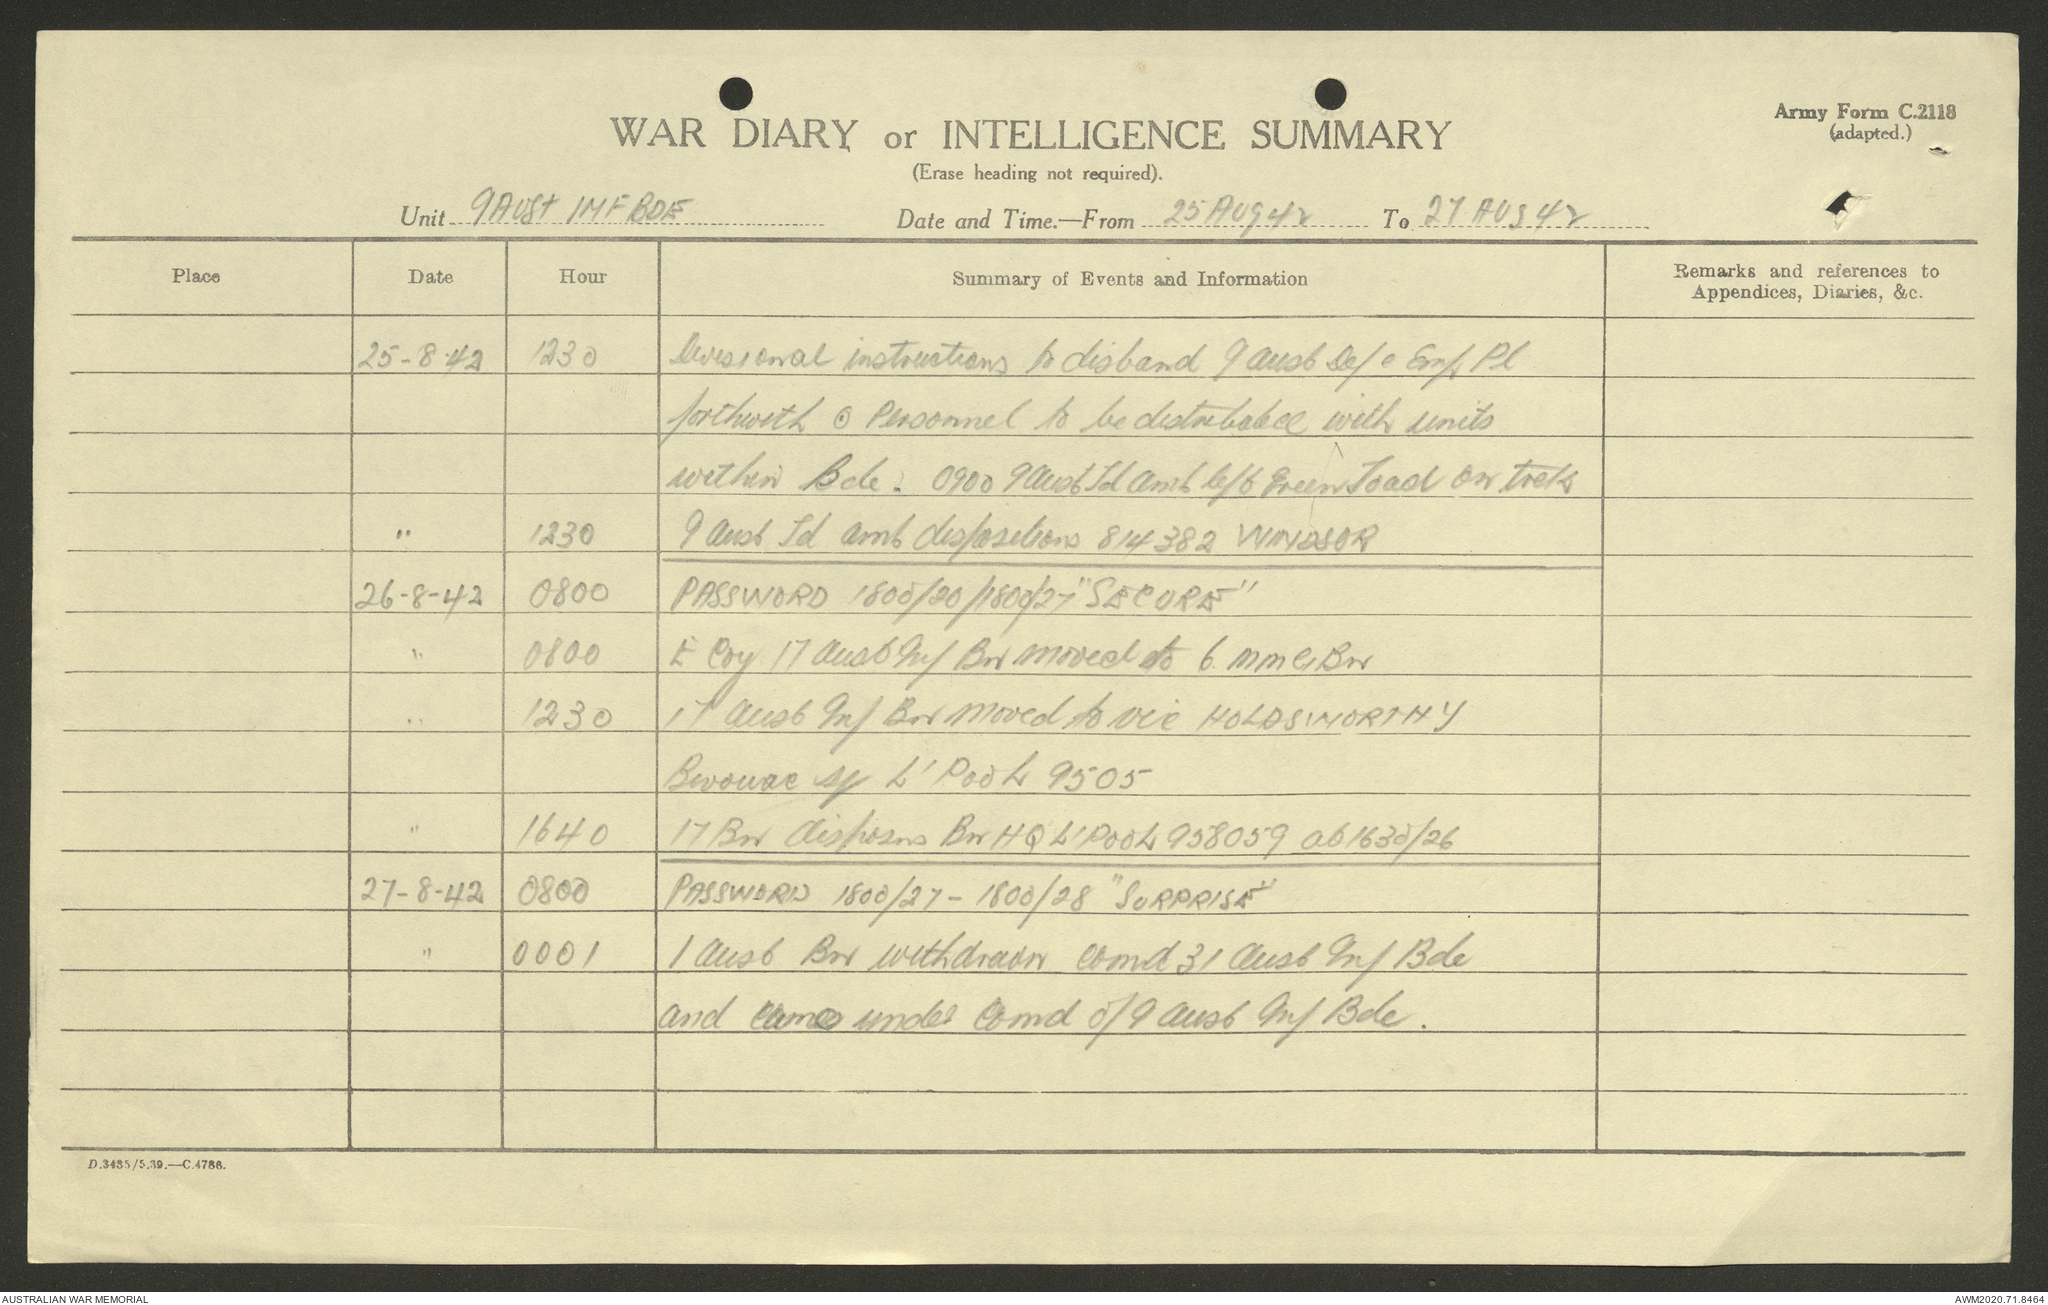 Army Form C.2118
(adapted.)
WAR DIARY or INTELLIGENCE SUMMARY
(Erase heading not required).
Unit 9 Aust INF BDE Date and Time.—From 25 AUG 42 To 27 AUG 42
Place Date Hour Summary of Events and Information Remarks and references to
Appendices, Diaries, &c.
25-8-42 1230 Divisional instructions to disband 9 Aust Def & Emp Pl
forthwith Personnel to be distributed with units
within Bde. 0900 9 Aust Fd Amb left Green Road on trek
" 1230 9 Aust Fd Amb dispositions 814382 WINDSOR
26-8-42 0800 PASSWORD 1800/20/1800/27 "SECURE"
" 0800 E Coy 17 Aust Inf Bn moved to 6 MMG Bn
" 1230 17 Aust Inf Bn moved to vic HOLDSWORTHY
Bivouac sq L'POOL 9505
" 1640 17 Bn disposns Bn HQ L'POOL 958059 at 1630/26
27-8-42 0800 PASSWORD 1800/27 - 1800/28 "SURPRISE"
" 0001 1 Aust Bn withdrawn comd 31 Aust Inf Bde
and came under comd of 9 Aust Inf Bde.
D.3485/5.39.—C.4786.
AUSTRALIAN WAR MEMORIAL
AWM2020.71.8464